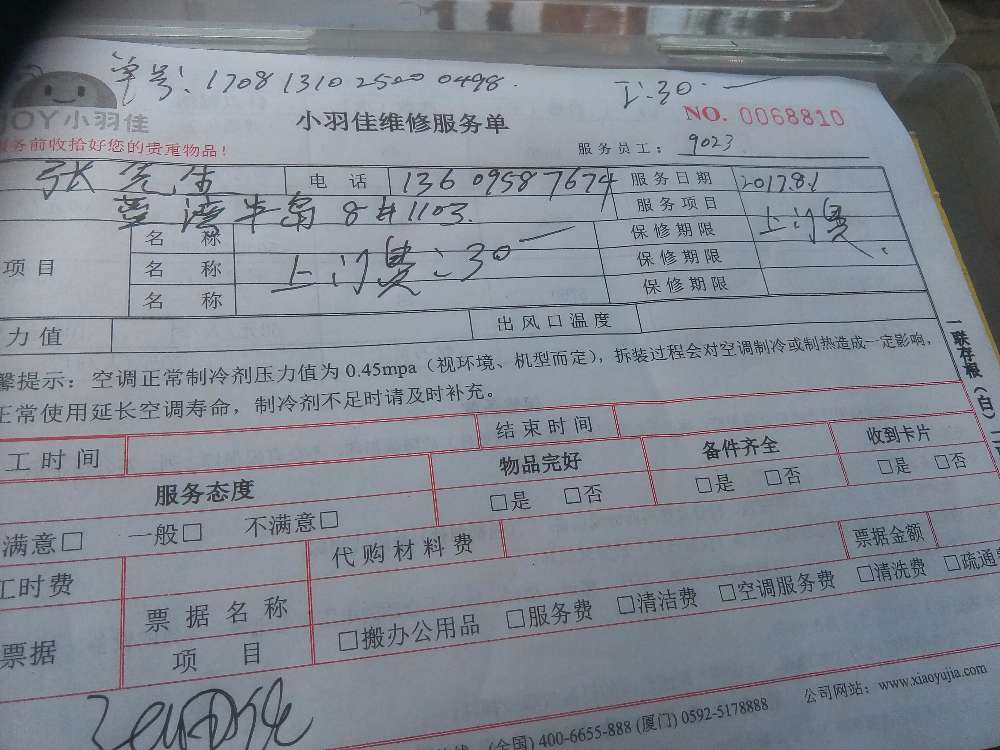 单号: 1708131025000498
上:30.一
JOY小羽佳
小羽佳维修服务单
NO. 0068810
务前收拾好您的贵重物品!
服务员工: 9023
张先生 电话 13609587674 服务日期 2017.8.1
湾半岛8#1103. 服务项目 上门费
名称 保修期限
项目 名称 上门费:30一 保修期限
名称 保修期限
力值 出风口温度
馨提示:空调正常制冷剂压力值为 0.45mpa(视环境、机型而定),拆装过程会对空调制冷或制热造成一定影响,
正常使用延长空调寿命,制冷剂不足时请及时补充。
一联存根(白)
工时间 结束时间
服务态度 物品完好 备件齐全 收到卡片
□是 □否 □是 □否 □是 □否
满意□ 一般□ 不满意□
工时费 代购材料费 票据金额
票据 票据名称
项目 □搬办公用品 □服务费 □清洁费 □空调服务费 □清洗费 □疏通
(全国) 400-6655-888 (厦门) 0592-5178888 公司网站:www.xiaoyujia.com